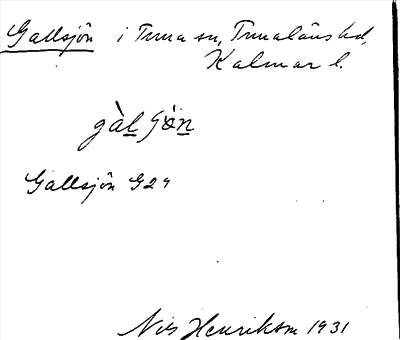 Gallsjön i Tuna sn, Tunaläns hd,
Kalmar l.
gàl ſön
Gallsjön G29
Nils Henrikson 1931